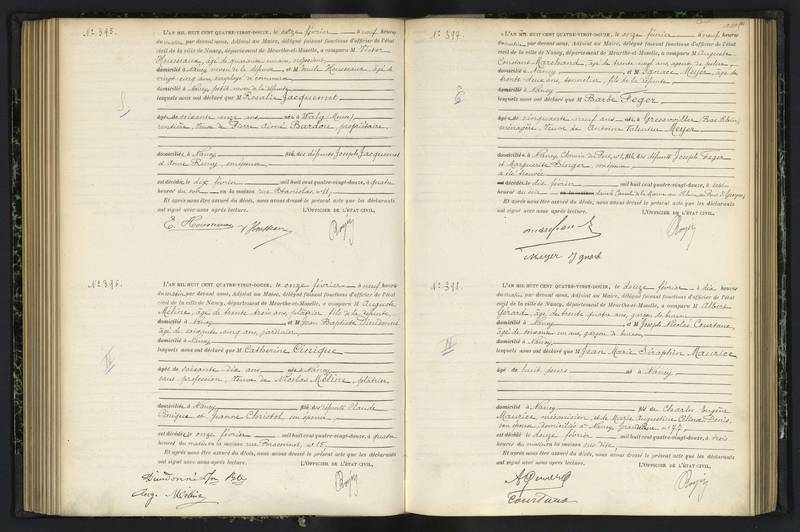 N° 395.
L'AN MIL HUIT CENT QUATRE-VINGT-DOUZE, le onze février à neuf heures
du matin, par devant nous, Adjoint au Maire, délégué faisant fonctions d'officier de l'état
civil de la ville de Nancy, département de Meurthe-et-Moselle, a comparu M Victor
Housseaux, âgé de quarante
domicilié à Nancy neveu de la défunte et M Emile Housseaux, âgé de
vingt cinq ans, employé de commerce
domicilié à Nancy petit neveu de la défunte
lesquels nous ont déclaré que M Rosalie Jacquemet
âgée de soixante onze ans née à (Meuse)
rentière, veuve de Bardou, propriétaire,
domiciliée à Nancy fille des défunts Joseph Jacquemet
et Anne Remy, son épouse
est décédée, le dix février mil huit cent quatre-vingt-douze, à quatre
heures du soir en la maison rue Stanislas, n° 11,
Et après nous être assuré du décès, nous avons dressé le présent acte que les déclarants
ont signé avec nous après lecture. L'OFFICIER DE L'ÉTAT CIVIL,
N° 396.
L'AN MIL HUIT CENT QUATRE-VINGT-DOUZE, le onze février à neuf heures
du matin, par devant nous, Adjoint au Maire, délégué faisant fonctions d'officier de l'état
civil de la ville de Nancy, département de Meurthe-et-Moselle, a comparu M Auguste
Méline, âgé de trente trois ans, plâtrier, fils de la défunte,
domicilié à Nancy et M Jean Baptiste Dieudonné
âgé de soixante cinq ans,
domicilié à Nancy
lesquels nous ont déclaré que M Catherine Cinique
âgée de soixante dix ans née à Nancy
sans profession, veuve de Nicolas Méline, plâtrier,
domiciliée à Nancy fille des défunts Claude
Cinique et Jeanne Christol, son épouse,
est décédée, le onze février mil huit cent quatre-vingt-douze, à quatre
heures du matin en la maison rue n° 15,
Et après nous être assuré du décès, nous avons dressé le présent acte que les déclarants
ont signé avec nous après lecture. L'OFFICIER DE L'ÉTAT CIVIL,
N° 397.
L'AN MIL HUIT CENT QUATRE-VINGT-DOUZE, le onze février à neuf heures
du matin, par devant nous, Adjoint au Maire, délégué faisant fonctions d'officier de l'état
civil de la ville de Nancy, département de Meurthe-et-Moselle, a comparu M Auguste
Constant Marchand, âgé de trente neuf ans, agent de police,
domicilié à Nancy et M Ignace Meyer, âgé de
trente deux ans, tonnelier, fils de la défunte
domicilié à Nancy
lesquels nous ont déclaré que M Barbe Feger
âgée de cinquante neuf ans née à Gresswiller (Bas-Rhin)
ménagère, veuve de Antoine Valentin Meyer
domiciliée à Nancy Chemin du fille des défunts Joseph Feger
et Marguerite Bierger, son épouse
a été trouvée
le dix février mil huit cent quatre-vingt-douze, à
heures du soir
Et après nous être assuré du décès, nous avons dressé le présent acte que les déclarants
ont signé avec nous après lecture. L'OFFICIER DE L'ÉTAT CIVIL,
Marchand
Meyer Ignace
N° 398.
L'AN MIL HUIT CENT QUATRE-VINGT-DOUZE, le douze février à dix heures
du matin, par devant nous, Adjoint au Maire, délégué faisant fonctions d'officier de l'état
civil de la ville de Nancy, département de Meurthe-et-Moselle, a comparu M Albert
Gérard, âgé de trente quatre ans, garçon de bureau
domicilié à Nancy et M Joseph Nicolas Courtaux,
âgé de soixante un ans, garçon de bureau,
domicilié à Nancy
lesquels nous ont déclaré que M Jean Marie Séraphin Maurice
âgé de huit jours né à Nancy,
domicilié à Nancy fils de Charles Eugène
Maurice, mécanicien, et de Marie Augustine Denis,
son épouse, domiciliés à Nancy, Grande Rue n° 77,
est décédé le douze février mil huit cent quatre-vingt-douze, à trois
heures du matin en la maison
Et après nous être assuré du décès, nous avons dressé le présent acte que les déclarants
ont signé avec nous après lecture. L'OFFICIER DE L'ÉTAT CIVIL,
A Gérard
Courtaux